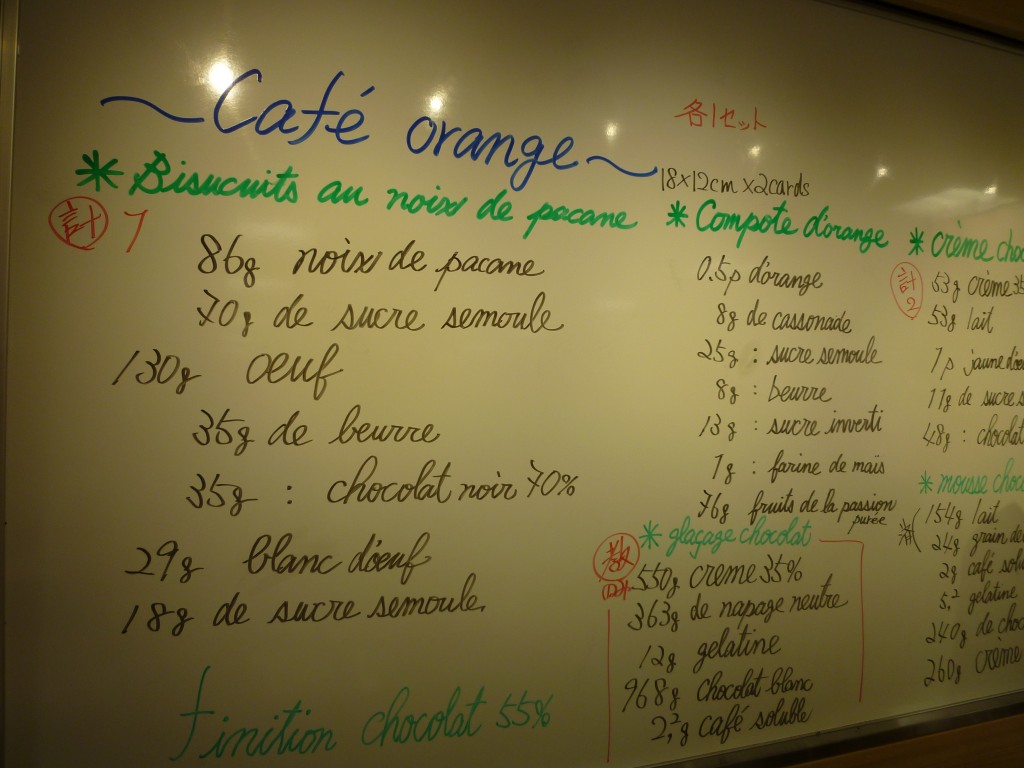 ~Café orange~
各1セット
18×12cm×2cards
* Bisucuits au noix de pacane
計 1
86g noix de pacane
70g de sucre semoule
130g oeuf
35g de beurre
35g : chocolat noir 70%
29g blanc d'oeuf
18g de sucre semoule.
finition chocolat 55%
* Compote d'orange
0.5p d'orange
8g de cassonade
25g : sucre semoule
8g : beurre
13g : sucre inverti
1g : farine de maïs
76g fruits de la passion
purée
* glaçage chocolat
550g creme 35%
363g de napage neutre
12g gelatine
968g chocolat blanc
2,2g café soluble
* crème cho
計2
53g crème 35
53g lait
1p jaune d'oe
11g de sucre s
48g : chocolat
* mousse choc
154g lait
24g grain de
2g café solu
5,2 gelatine
240g de choc
260g crème